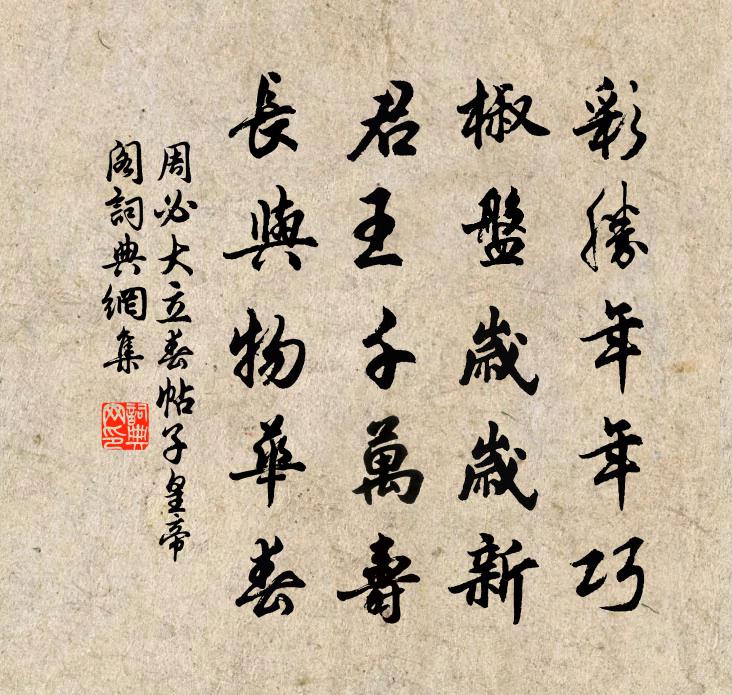 彩勝年年巧
椒盤歲歲新
君王千萬壽
長與物華春
周必大立春帖子皇帝
閣詞典網集
詞典
网印